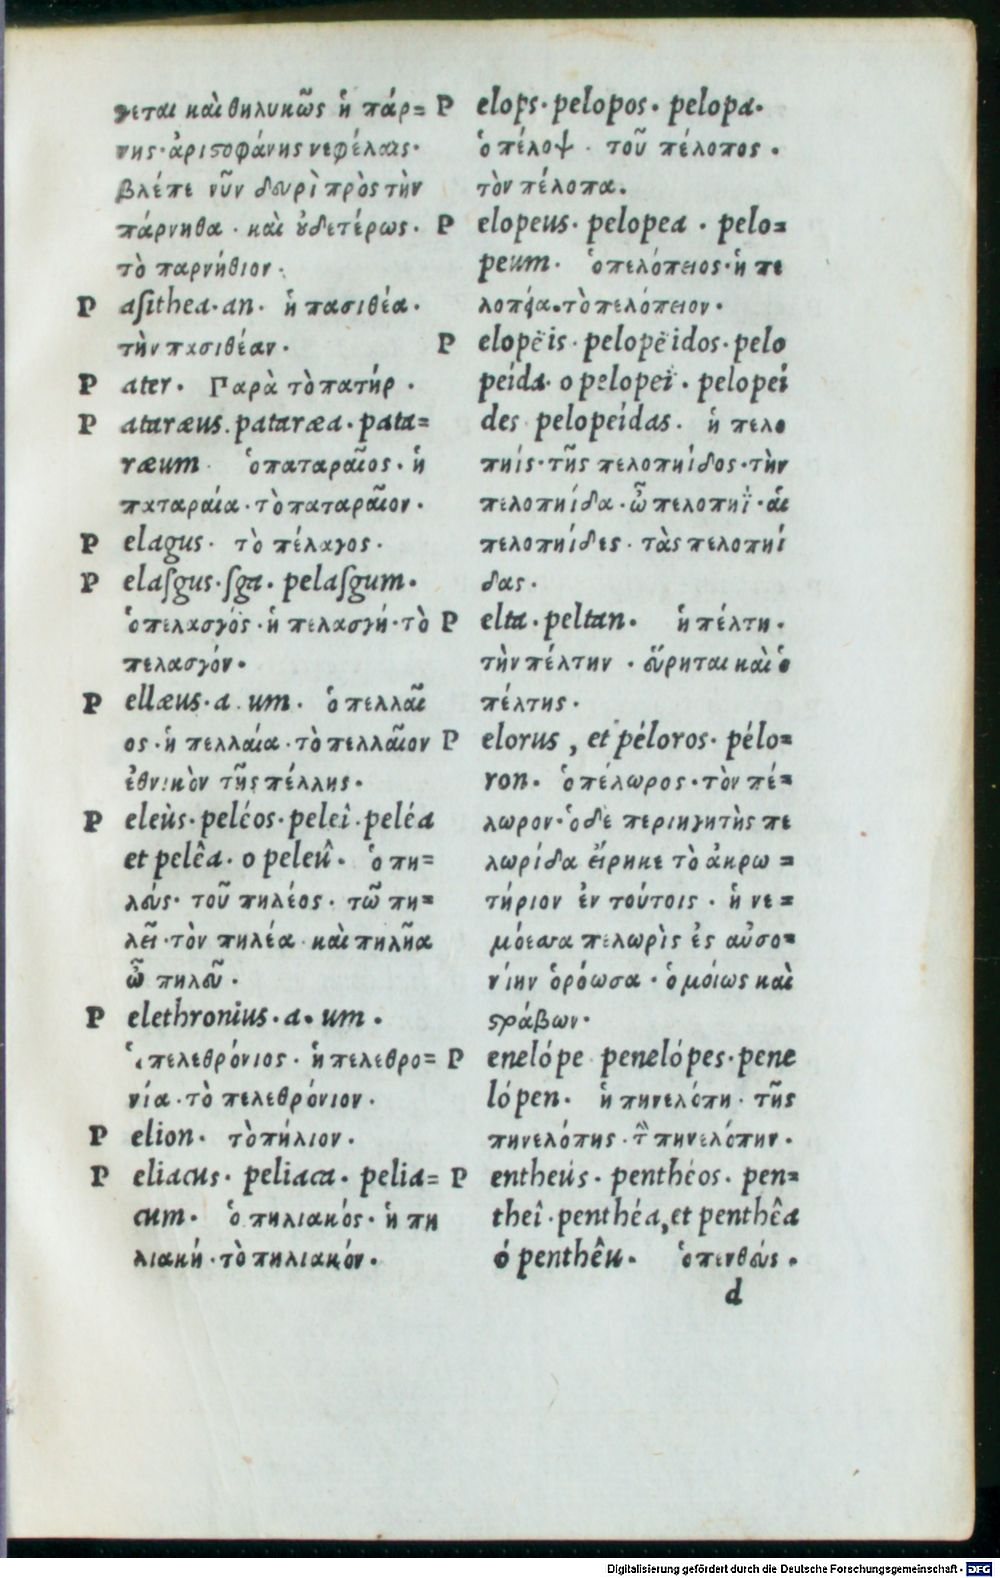 γεται καὶ θηλυκῶς ἡ πάρ=
νης· ἀριστοφάνης νεφέλαις·
βλέπε νῦν δευρὶ πρὸς τὴν
πάρνηθα · καὶ οὐδετέρως·
τὸ παρνήθιον ·
P asithea·an· ἡ πασιθέα·
τὴν πασιθέαν·
P ater· Γαρὰ τὸ πατήρ ·
P ataræus. pataræa·pata=
ræum· ὁ παταραῖος· ἡ
παταραία·τὸ παταραῖον·
P elagus· τὸ πέλαγος·
P elaſgus·ſga· pelaſgum·
ὁ πελασγός·ἡ πελασγή·τὸ
πελασγόν·
P ellæus·a·um· ὁ πελλαῖ
ος·ἡ πελλαία·τὸ πελλαῖον
ἐθνικὸν τῆς πέλλης·
P eleùs·peléos·peleî·peléa
et pelêa· o peleû· ὁ πη=
λεύς· τοῦ πηλέος· τῶ πη=
λεῖ·τὸν πηλέα καὶ πηλῆα
ὦ πηλεῦ·
P elethronius·a·um·
ὁ πελεθρόνιος· ἡ πελεθρο=
νία·τὸ πελεθρόνιον·
P elion· τὸ πήλιον·
P eliacus· peliaca· pelia=
cum· ὁ πηλιακός· ἡ πη
λιακή·τὸ πηλιακόν·
P elops·pelopos· pelopa·
ὁ πέλοψ · τοῦ πέλοπος ·
τὸν πέλοπα.
P elopeus· pelopea · pelo=
peum· ὁ πελόπειος·ἡ πε
λοπεία·τὸ πελόπειον·
P elopëis·pelopëidos·pelo
peida·o pelopeï· pelopei
des pelopeídas· ἡ πελο
πηίς·τῆς πελοπηίδος·τὴν
πελοπηίδα·ὦ πελοπηΐ·αἱ
πελοπηίδες· τὰς πελοπηί
δας·
P elta·peltan· ἡ πέλτη·
τὴν πέλτην · εὕρηται καὶ ὁ
πέλτης·
P elorus, et péloros· pélo=
ron· ὁ πέλωρος·τὸν πέ=
λωρον·ὁ δε περιηγητὴς πε
λωρίδα εἴρηκε τὸ ἀκρω =
τήριον ἐν τούτοις· ἡ νε =
μόεσσα πελωρὶς ἐς αὐσο=
νίην ὁρόωσα· ὁμοίως καὶ
στράβων·
P enelópe penelópes·pene
lópen· ἡ πηνελόπη· τῆς
πηνελόπης· τὴν πηνελόπην·
P entheús· penthéos· pen=
theî·penthéa, et penthêa
ó penthêu· ὁ πενθεύς·
d
Digitalisierung gefördert durch die Deutsche Forschungsgemeinschaft · DFG